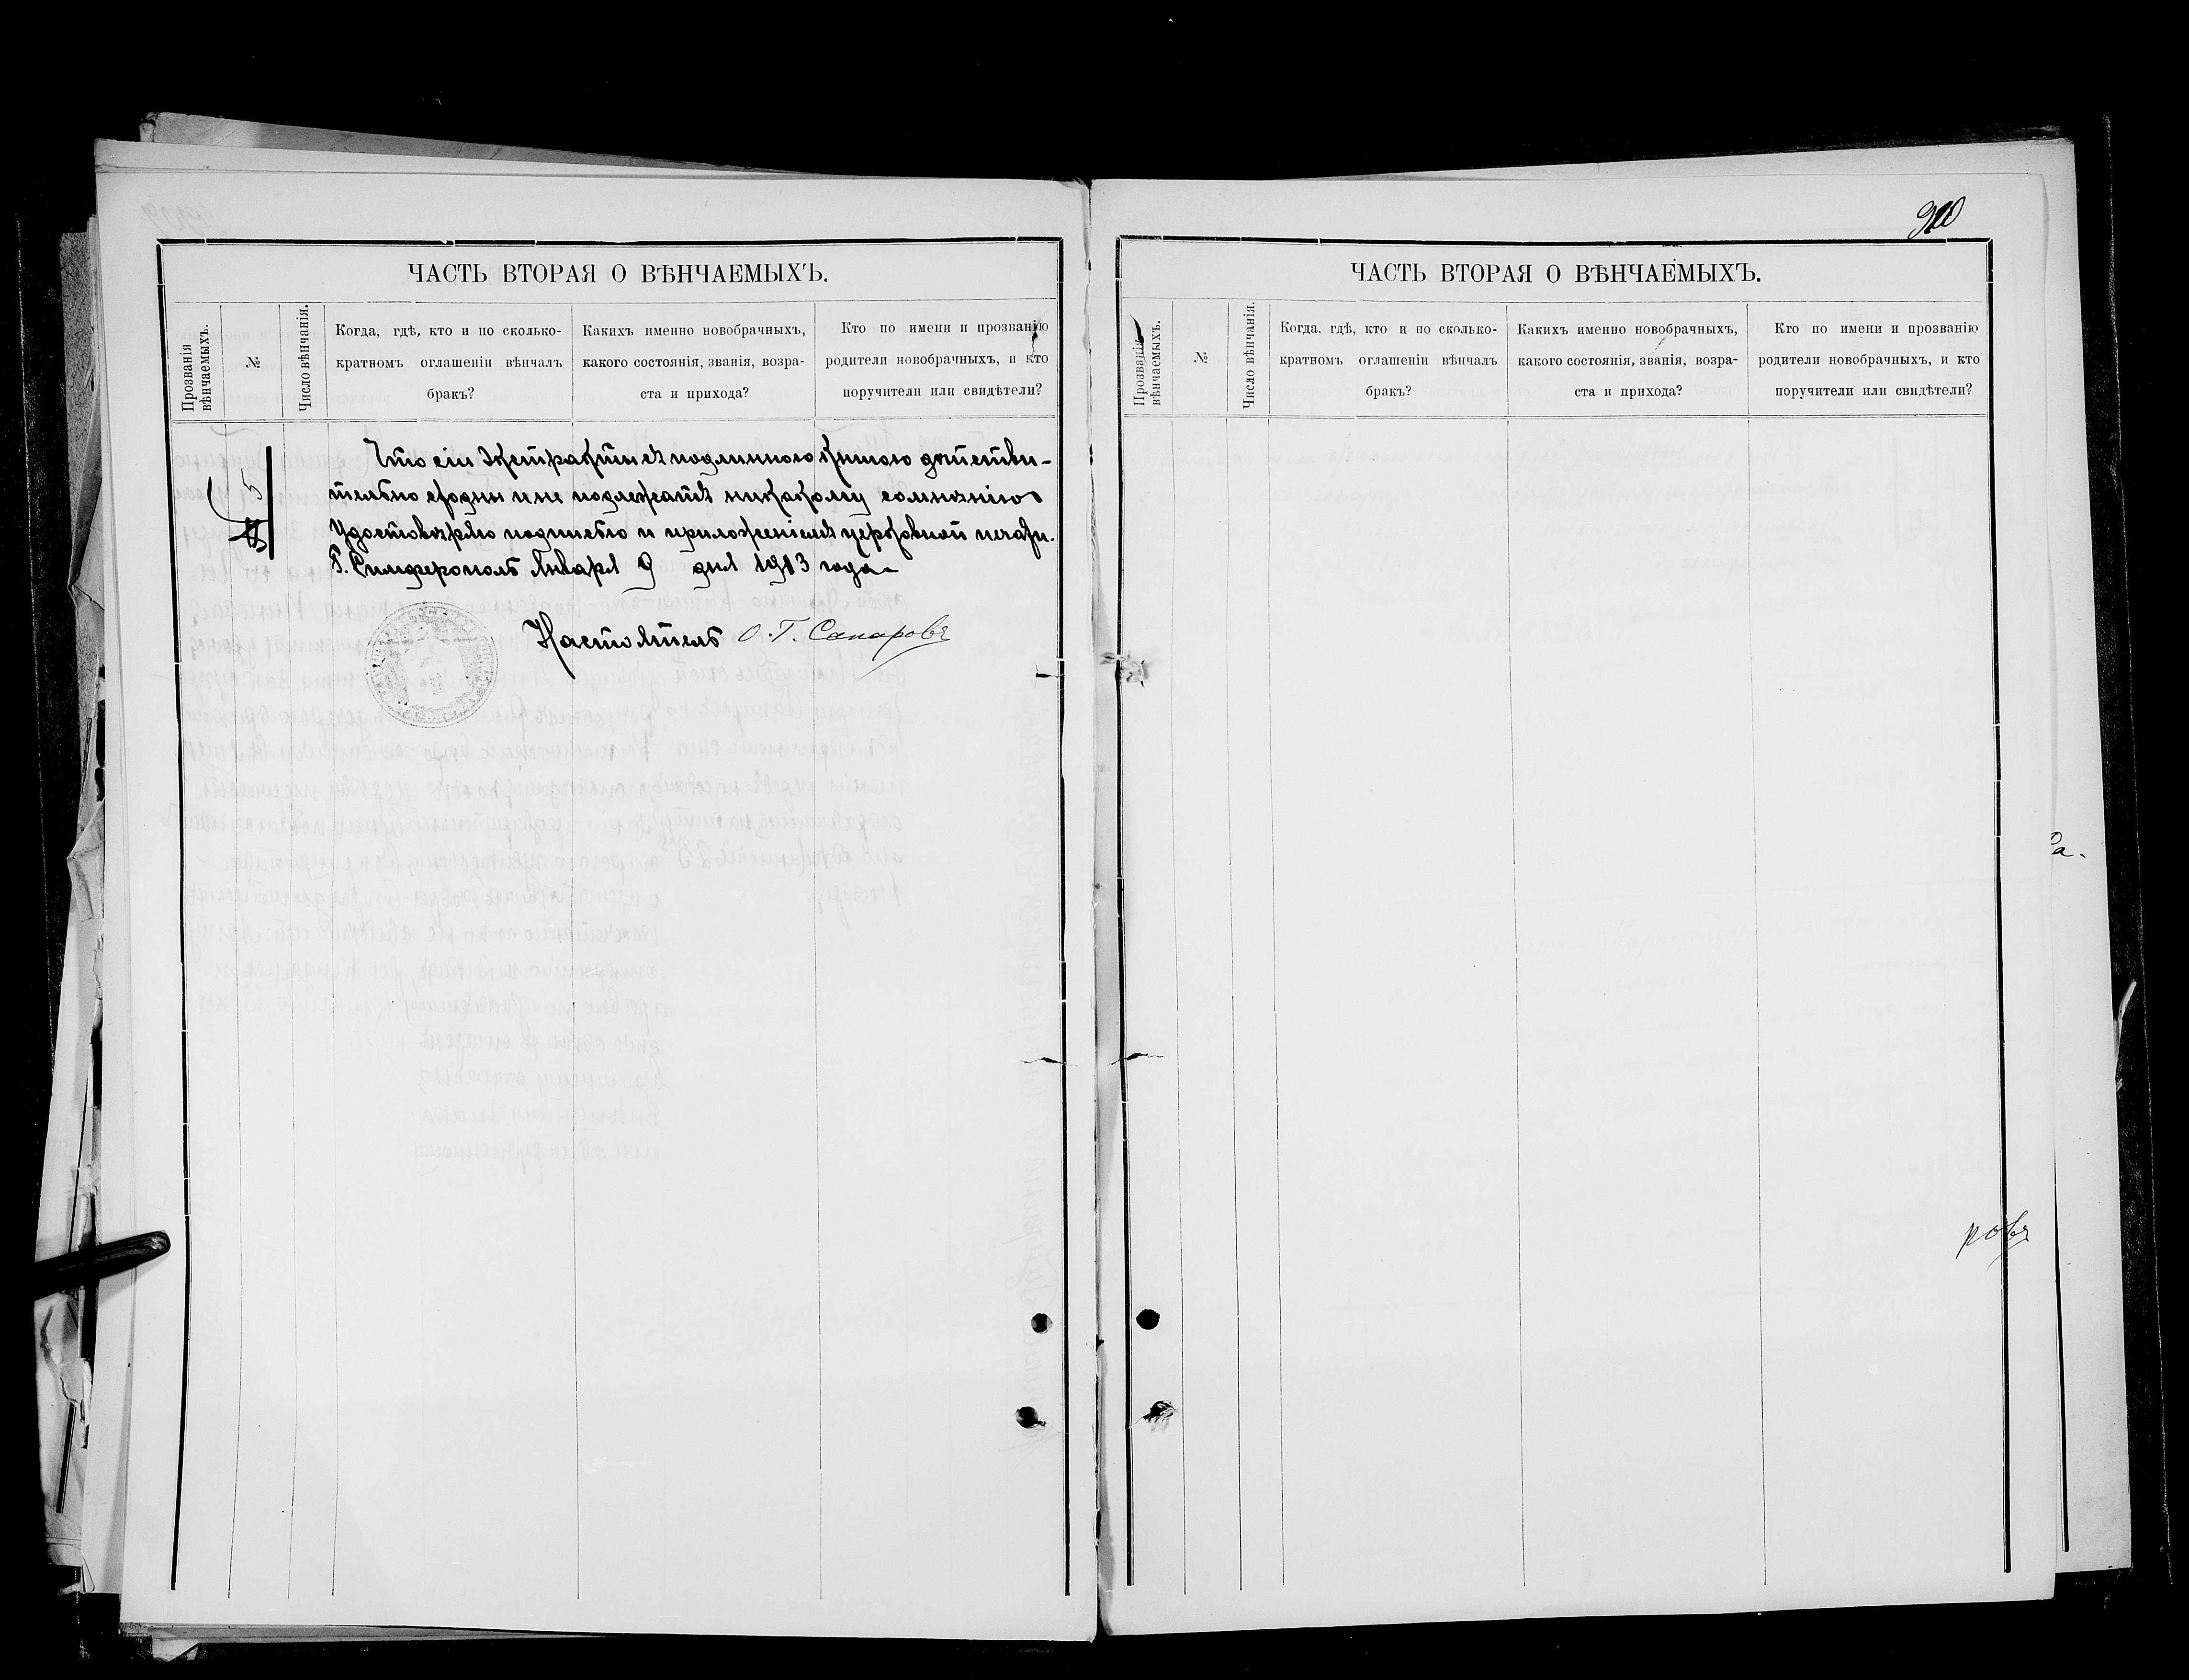 ЧАСТЬ ВТОРАЯ О ВѢНЧАЕМЫХЪ.
Прозванія
вѣнчаемыхъ.
№
Число вѣнчанія.
Когда, гдѣ, кто и по сколько-
кратномъ оглашеніи вѣнчалъ
бракъ?
Какихъ именно новобрачныхъ,
какого состоянія, званія, возра-
ста и прихода?
Кто по имени и прозванію
родители новобрачныхъ, и кто
поручители или свидѣтели?
Что сіи Экстракты съ подлинною книгою дѣйстви-
тельно сходны и не подлежатъ никакому сомнѣнію
Удостовѣряю подписью и приложеніемъ церковной печати.
Г. Симферополь Января 9 дня 1913 года
Настоятель О. Г. Сапаровъ
310
ЧАСТЬ ВТОРАЯ О ВѢНЧАЕМЫХЪ.
Прозванія
вѣнчаемыхъ.
№
Число вѣнчанія.
Когда, гдѣ, кто и по сколько-
кратномъ оглашеніи вѣнчалъ
бракъ?
Какихъ именно новобрачныхъ,
какого состоянія, званія, возра-
ста и прихода?
Кто по имени и прозванію
родители новобрачныхъ, и кто
поручители или свидѣтели?
ровъ